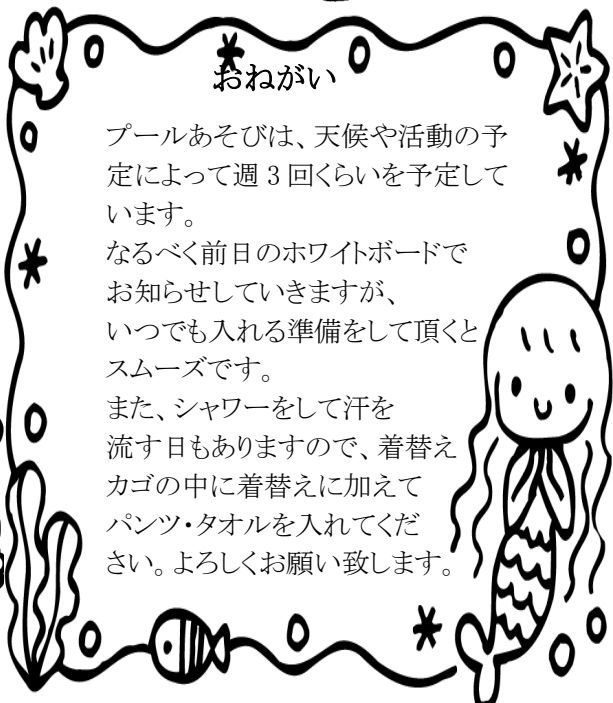 おねがい
プールあそびは、天候や活動の予
定によって週３回くらいを予定して
います。
なるべく前日のホワイトボードで
お知らせしていきますが、
いつでも入れる準備をして頂くと
スムーズです。
また、シャワーをして汗を
流す日もありますので、着替え
カゴの中に着替えに加えて
パンツ・タオルを入れてくだ
さい。よろしくお願い致します。